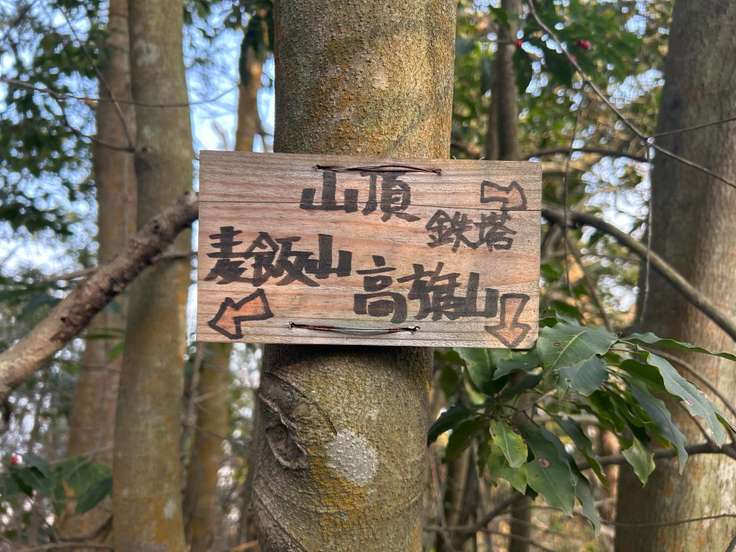 山頂
鉄塔
麦飯山
高旗山